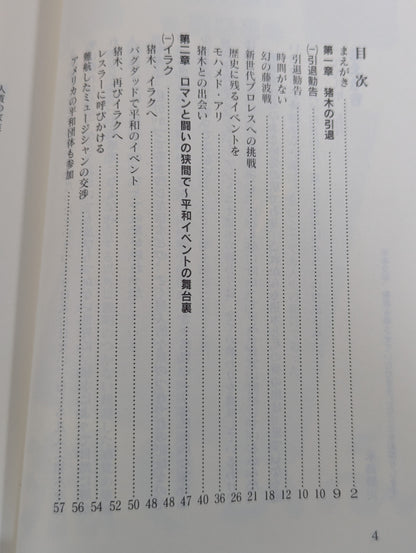 目次
まえがき 2
第一章 猪木の引退 9
㈠引退勧告 10
引退勧告 10
時間がない 12
幻の藤波戦 18
新世代プロレスへの挑戦 21
歴史に残るイベントを 26
モハメド・アリ 36
猪木との出会い 40
第二章 ロマンと闘いの狭間で〜平和イベントの舞台裏 47
㈠イラク 48
猪木、イラクへ 48
バグダッドで平和のイベント 50
猪木、再びイラクへ 52
レスラーに呼びかける 54
難航したミュージシャンの交渉 56
アメリカの平和団体も参加 57
4